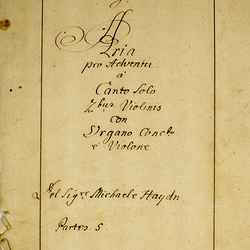 Aria
pro Adventu
à
Canto Solo
2bus Violinis
con
Organo Conc:
e Violone
Del Sigre Michaele Haydn
Partes. 5.